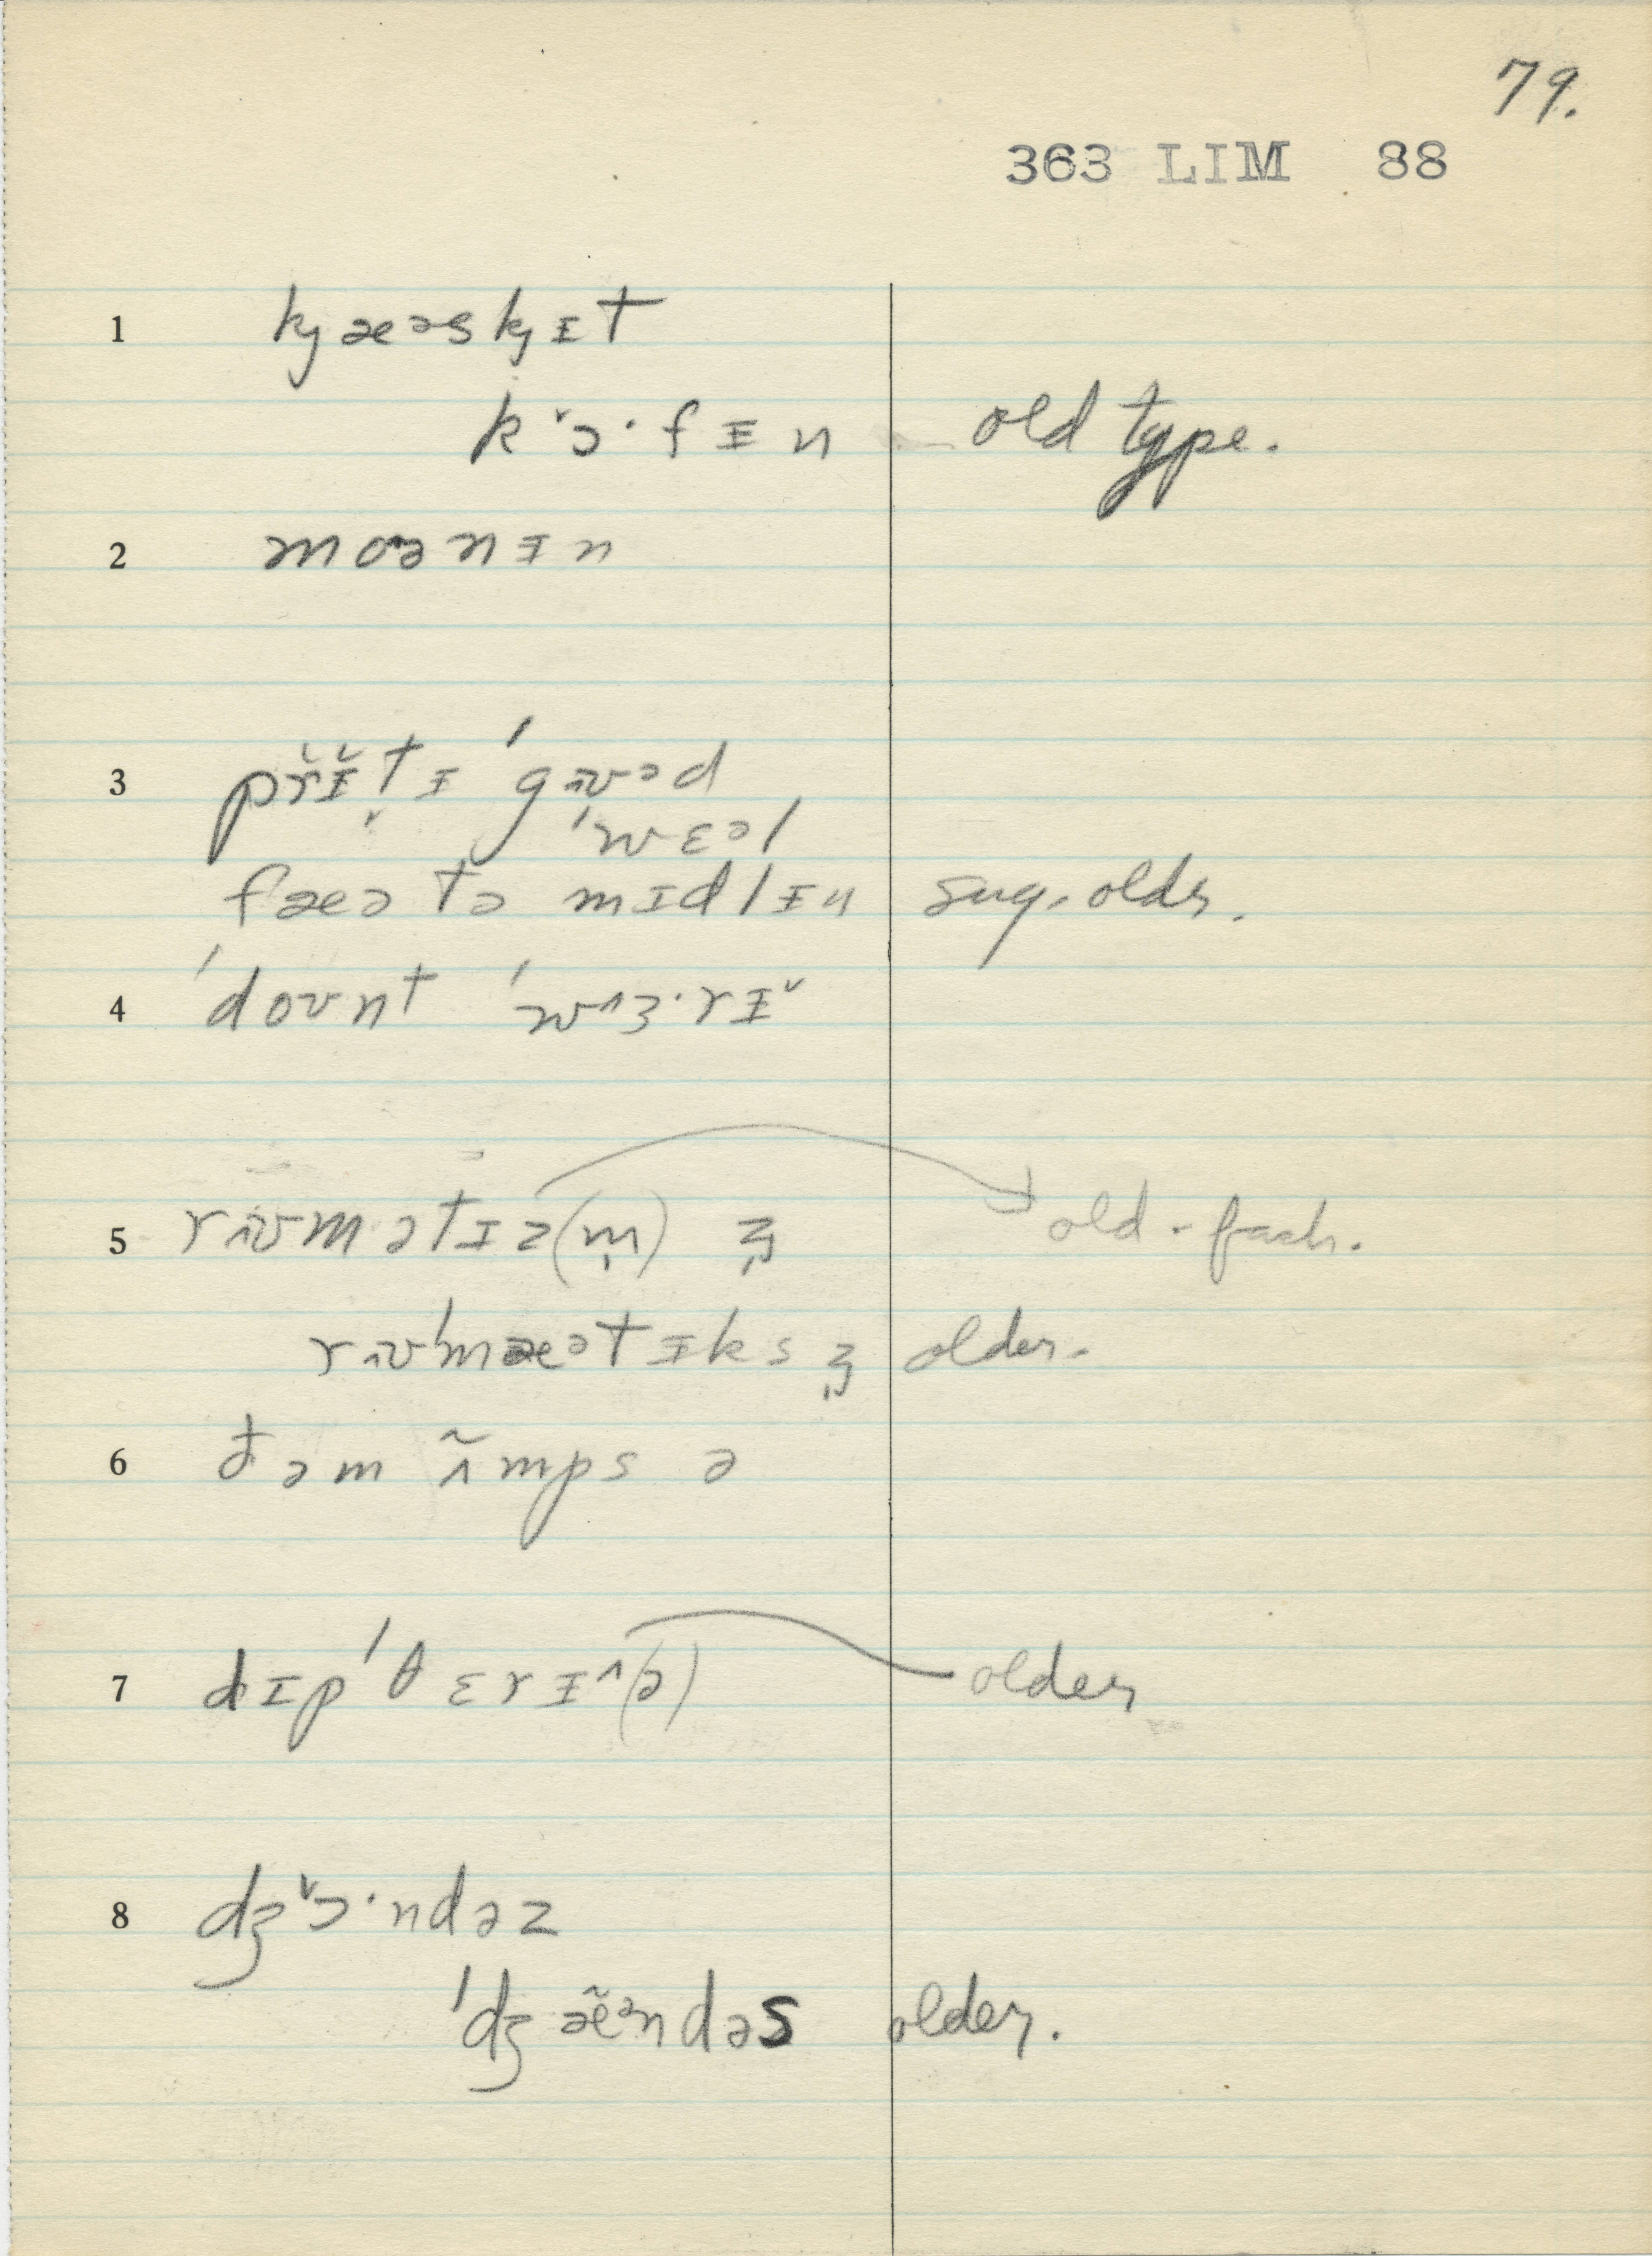 79.
363 LIM 88
1 kj æəskj ᵻt
k˅ɔ·fᵻn old type.
2 moənᵻn
3 pr̆ᵻ̆t̬ᵻ ˈgʊəd
ˈwɛəl
fæə tə mɪdlᵻn sug. older.
4 ˈdoʊnt ˈw^ɜ·rᵻ˅
5 mətɪz(m̩) old-fash.
older.
6 đəm ʌ̃mps ə
7 dɪpˈθɛrᵻ^(ə) older
8 dʒ˅ɔ·ndəz
ˈdʒæ̃ᵊndəs older.